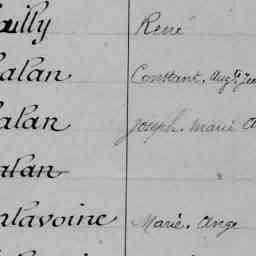 René
alan Constant. Aug.te
alan Joseph. Marie
alan
lavoine Marie. Ange